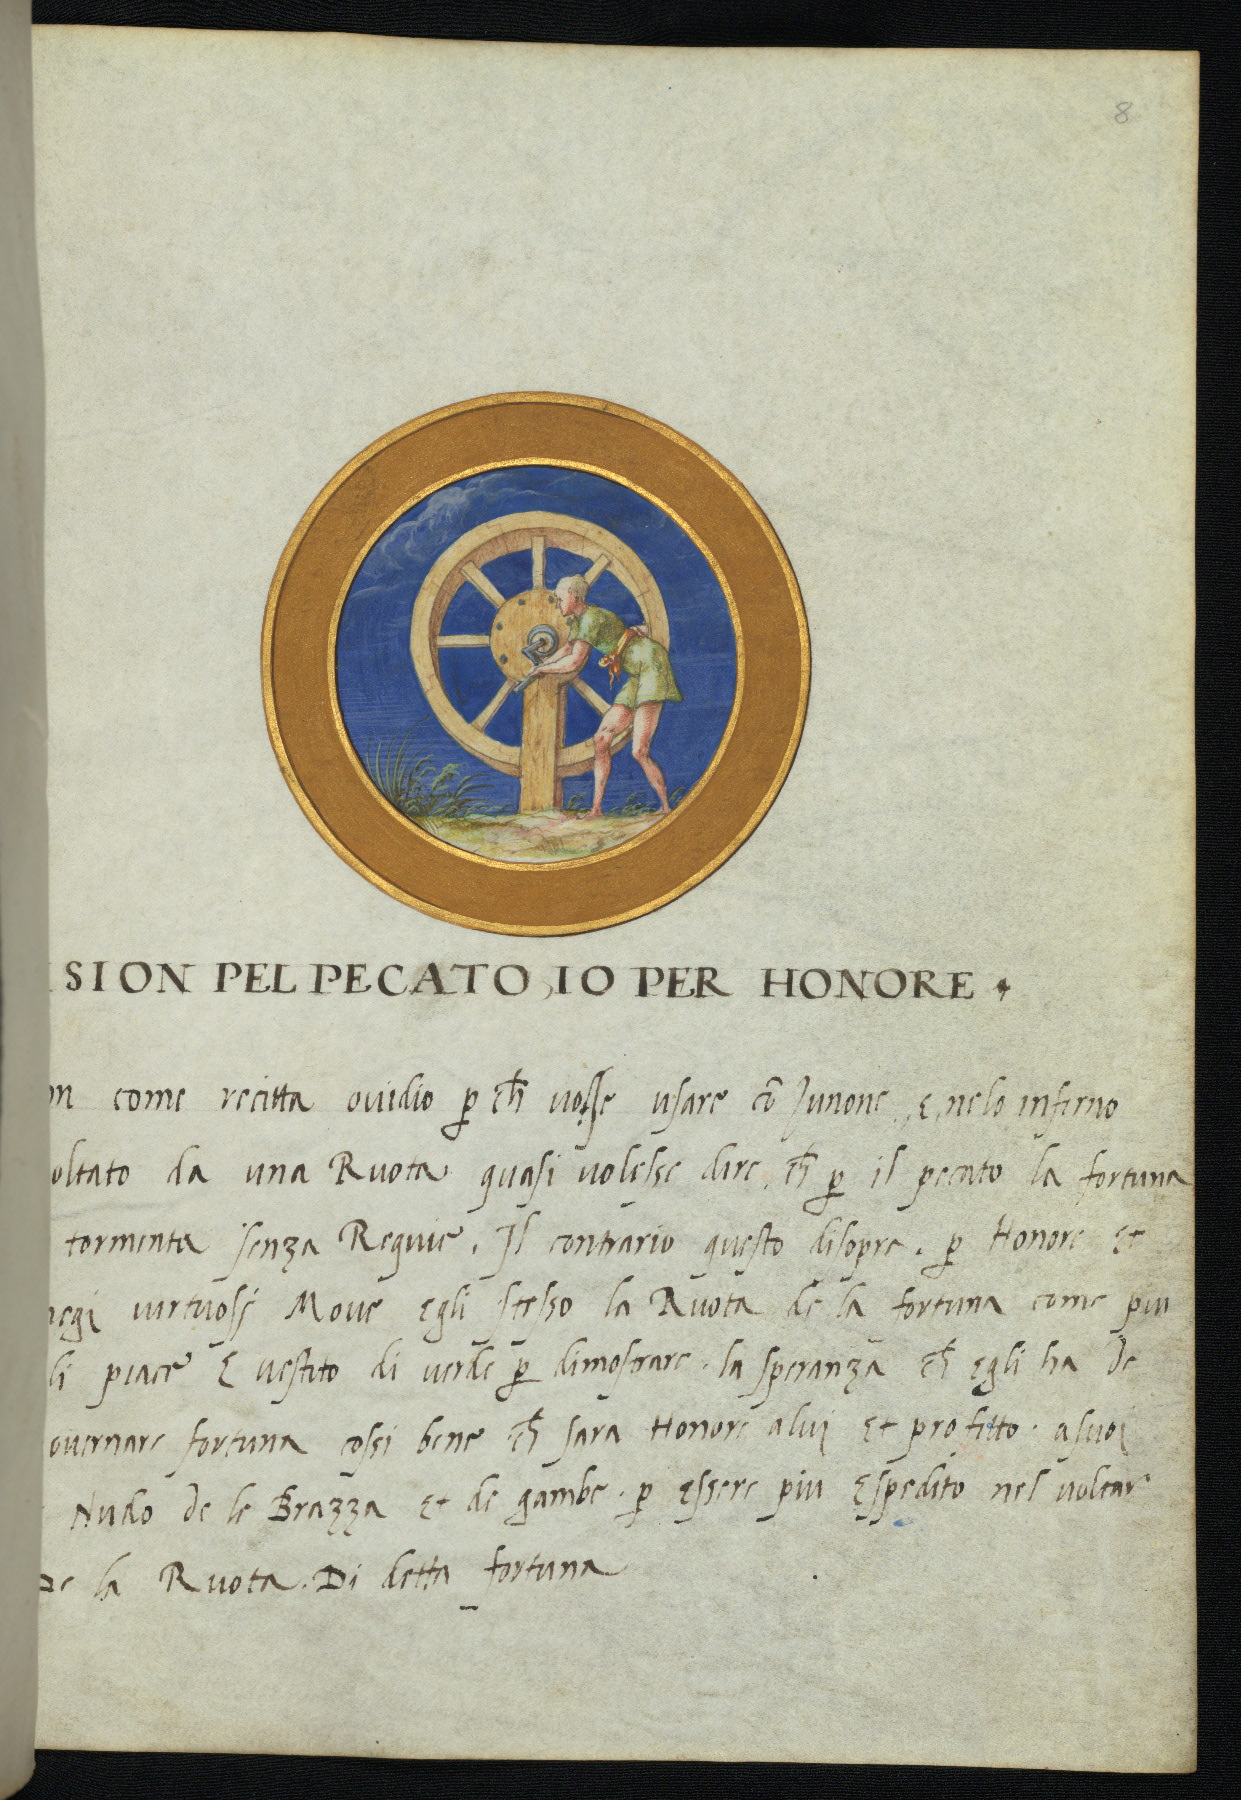 8
ISION PEL PECATO, IO PER HONORE
come recitta ouidio p ch̄ volse usare cō Junone, e, nelo infirno
oltato da una Ruota quasi volesse dire, ch̄ p il pecato la fortuna
tormenta senza Requie. Il contrario questo disopre. p Honore et
negi virtuosi Move egli stesso la Ruota de la fortuna come piu
li piace E vestito di verde p dimostrare. la speranza ch̄ egli ha De
overnare fortuna cossi bene ch̄ sara Honore alui et profitto. asuoi
Nudo De le Brazza et de gambe. p essere piu Espedito nel voltare
De la Ruota. Di detta fortuna